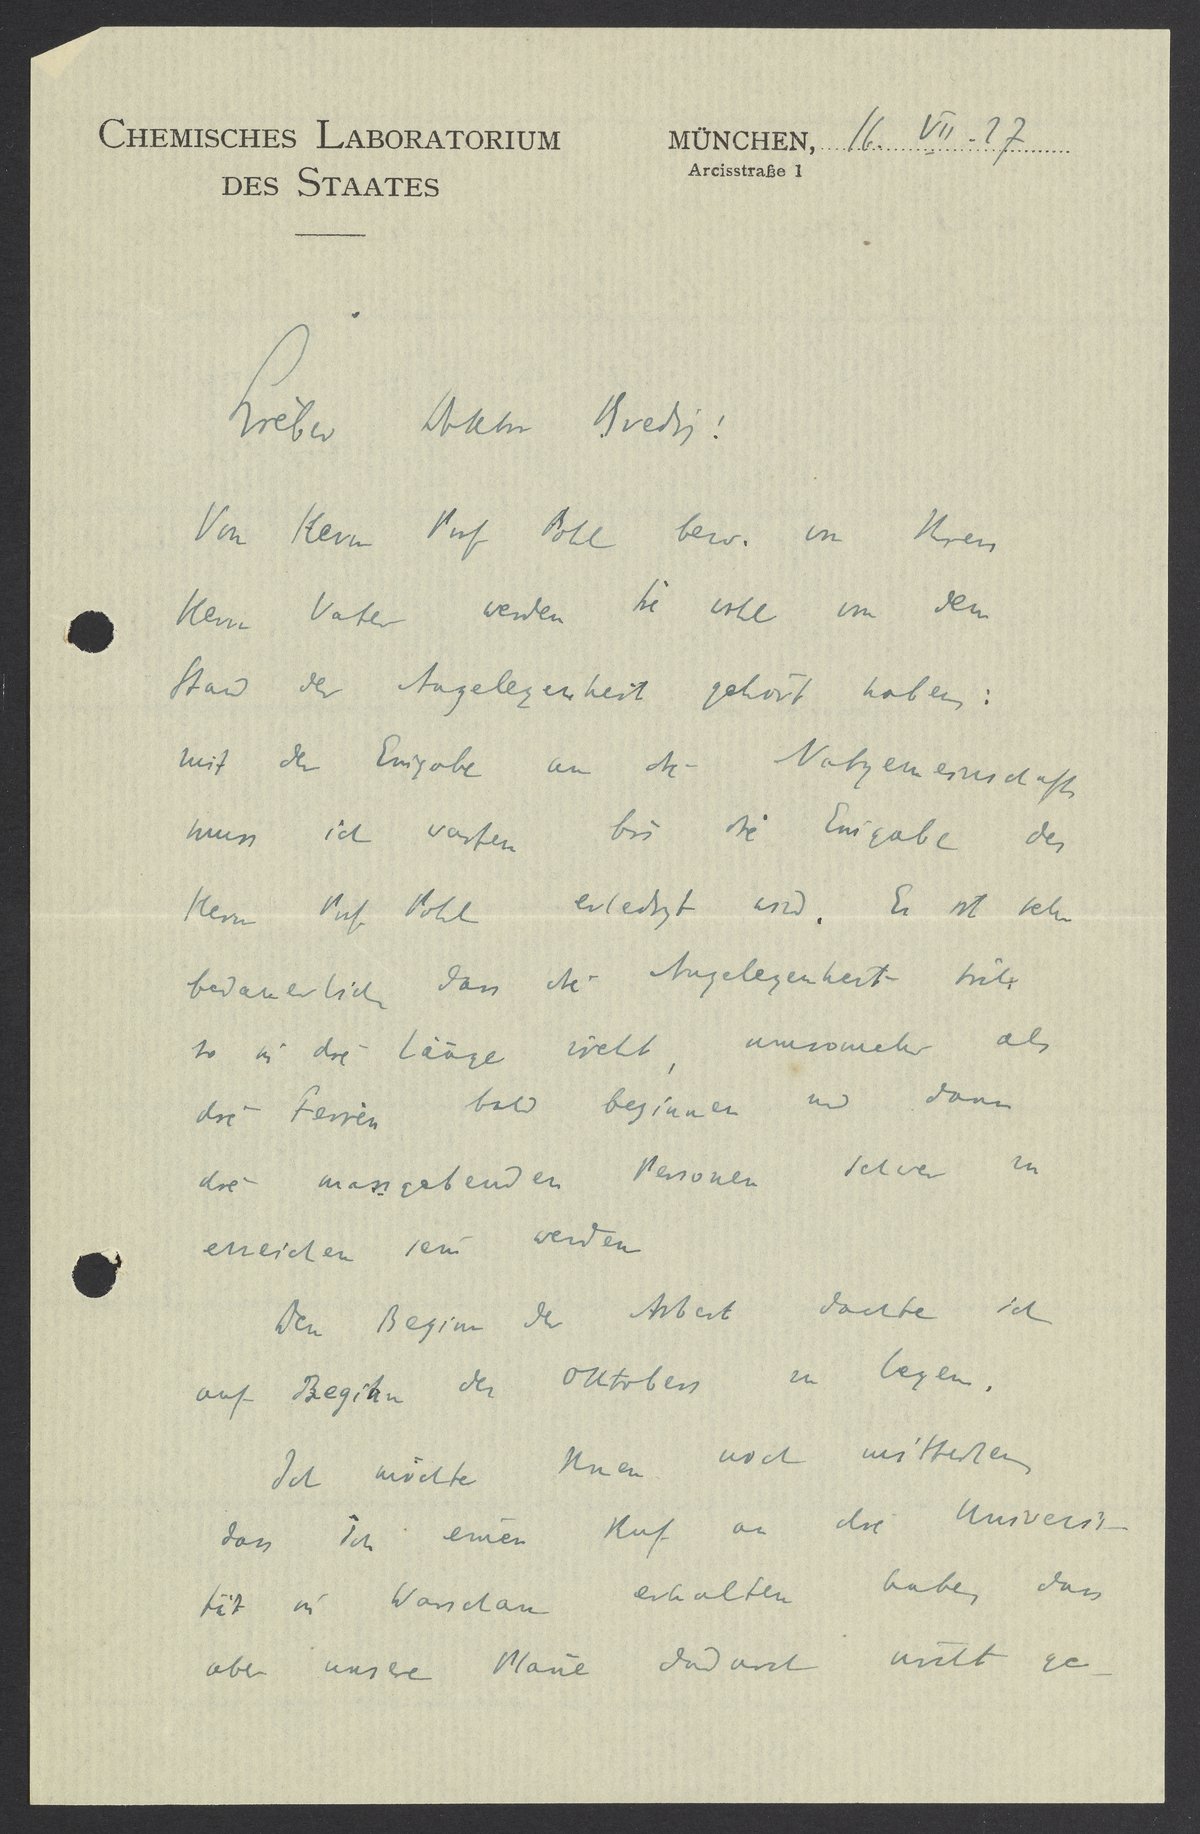 CHEMISCHES LABORATORIUM
DES STAATES
MÜNCHEN, 16. VII. 27
Arcisstraße 1
Lieber Doktor Bredig!
Von Herrn Prof Pohl bezw. von Ihrem
Herrn Vater werden Sie wohl von dem
Stand der Angelegenheit gehört haben:
mit der Eingabe an die Notgemeinschaft
muss ich warten bis die Eingabe des
Herrn Prof. Pohl erledigt wird. Es ist sehr
bedauerlich dass die Angelegenheit sich
so in die Länge zieht, umsomehr als
die Ferien bald beginnen und dann
die massgebenden Personen schwer zu
erreichen sein werden
Den Beginn der Arbeit dachte ich
auf Beginn des Oktobers zu legen.
Ich möchte Ihnen noch mitteilen,
dass ich einen Ruf an die Universi-
tät in Warschau erhalten habe, dass
aber unsere Pläne dadurch nicht ge-